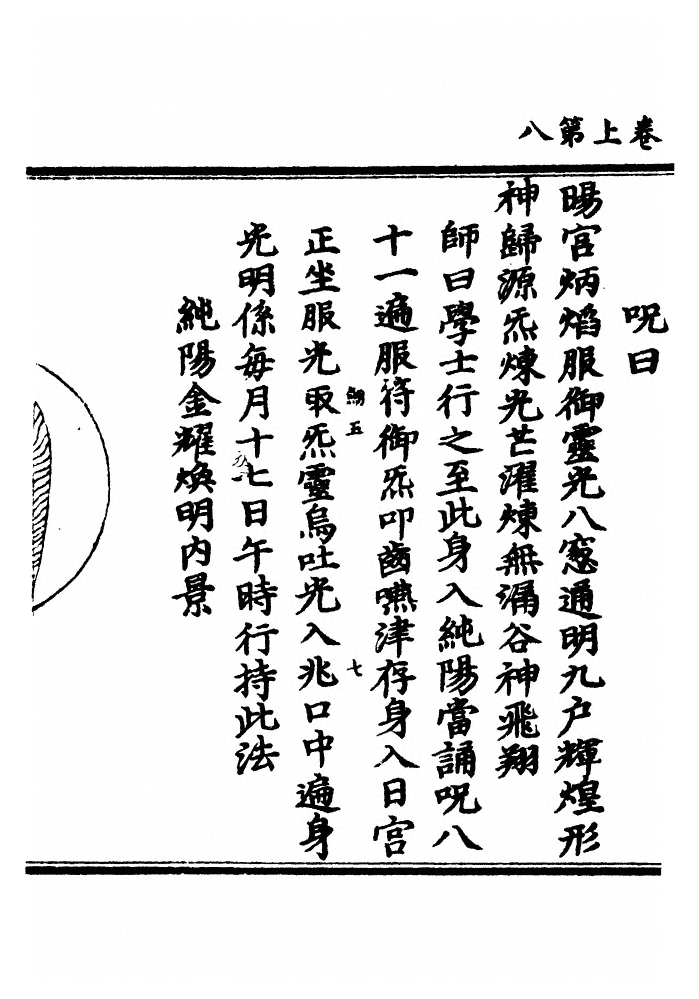 卷上第八
呪曰
暘宮炳焰服御靈光八窓通明九户輝煌形
神歸源炁煉光芒濯煉無漏谷神飛翔
師曰學士行之至此身入純陽當誦呪八
十一遍服符御炁叩齒嚥津存身入日宮
五 七
正坐服光取炁靈烏吐光入兆口中遍身
光明係每月十七日午時行持此法
純陽金耀煥明内景